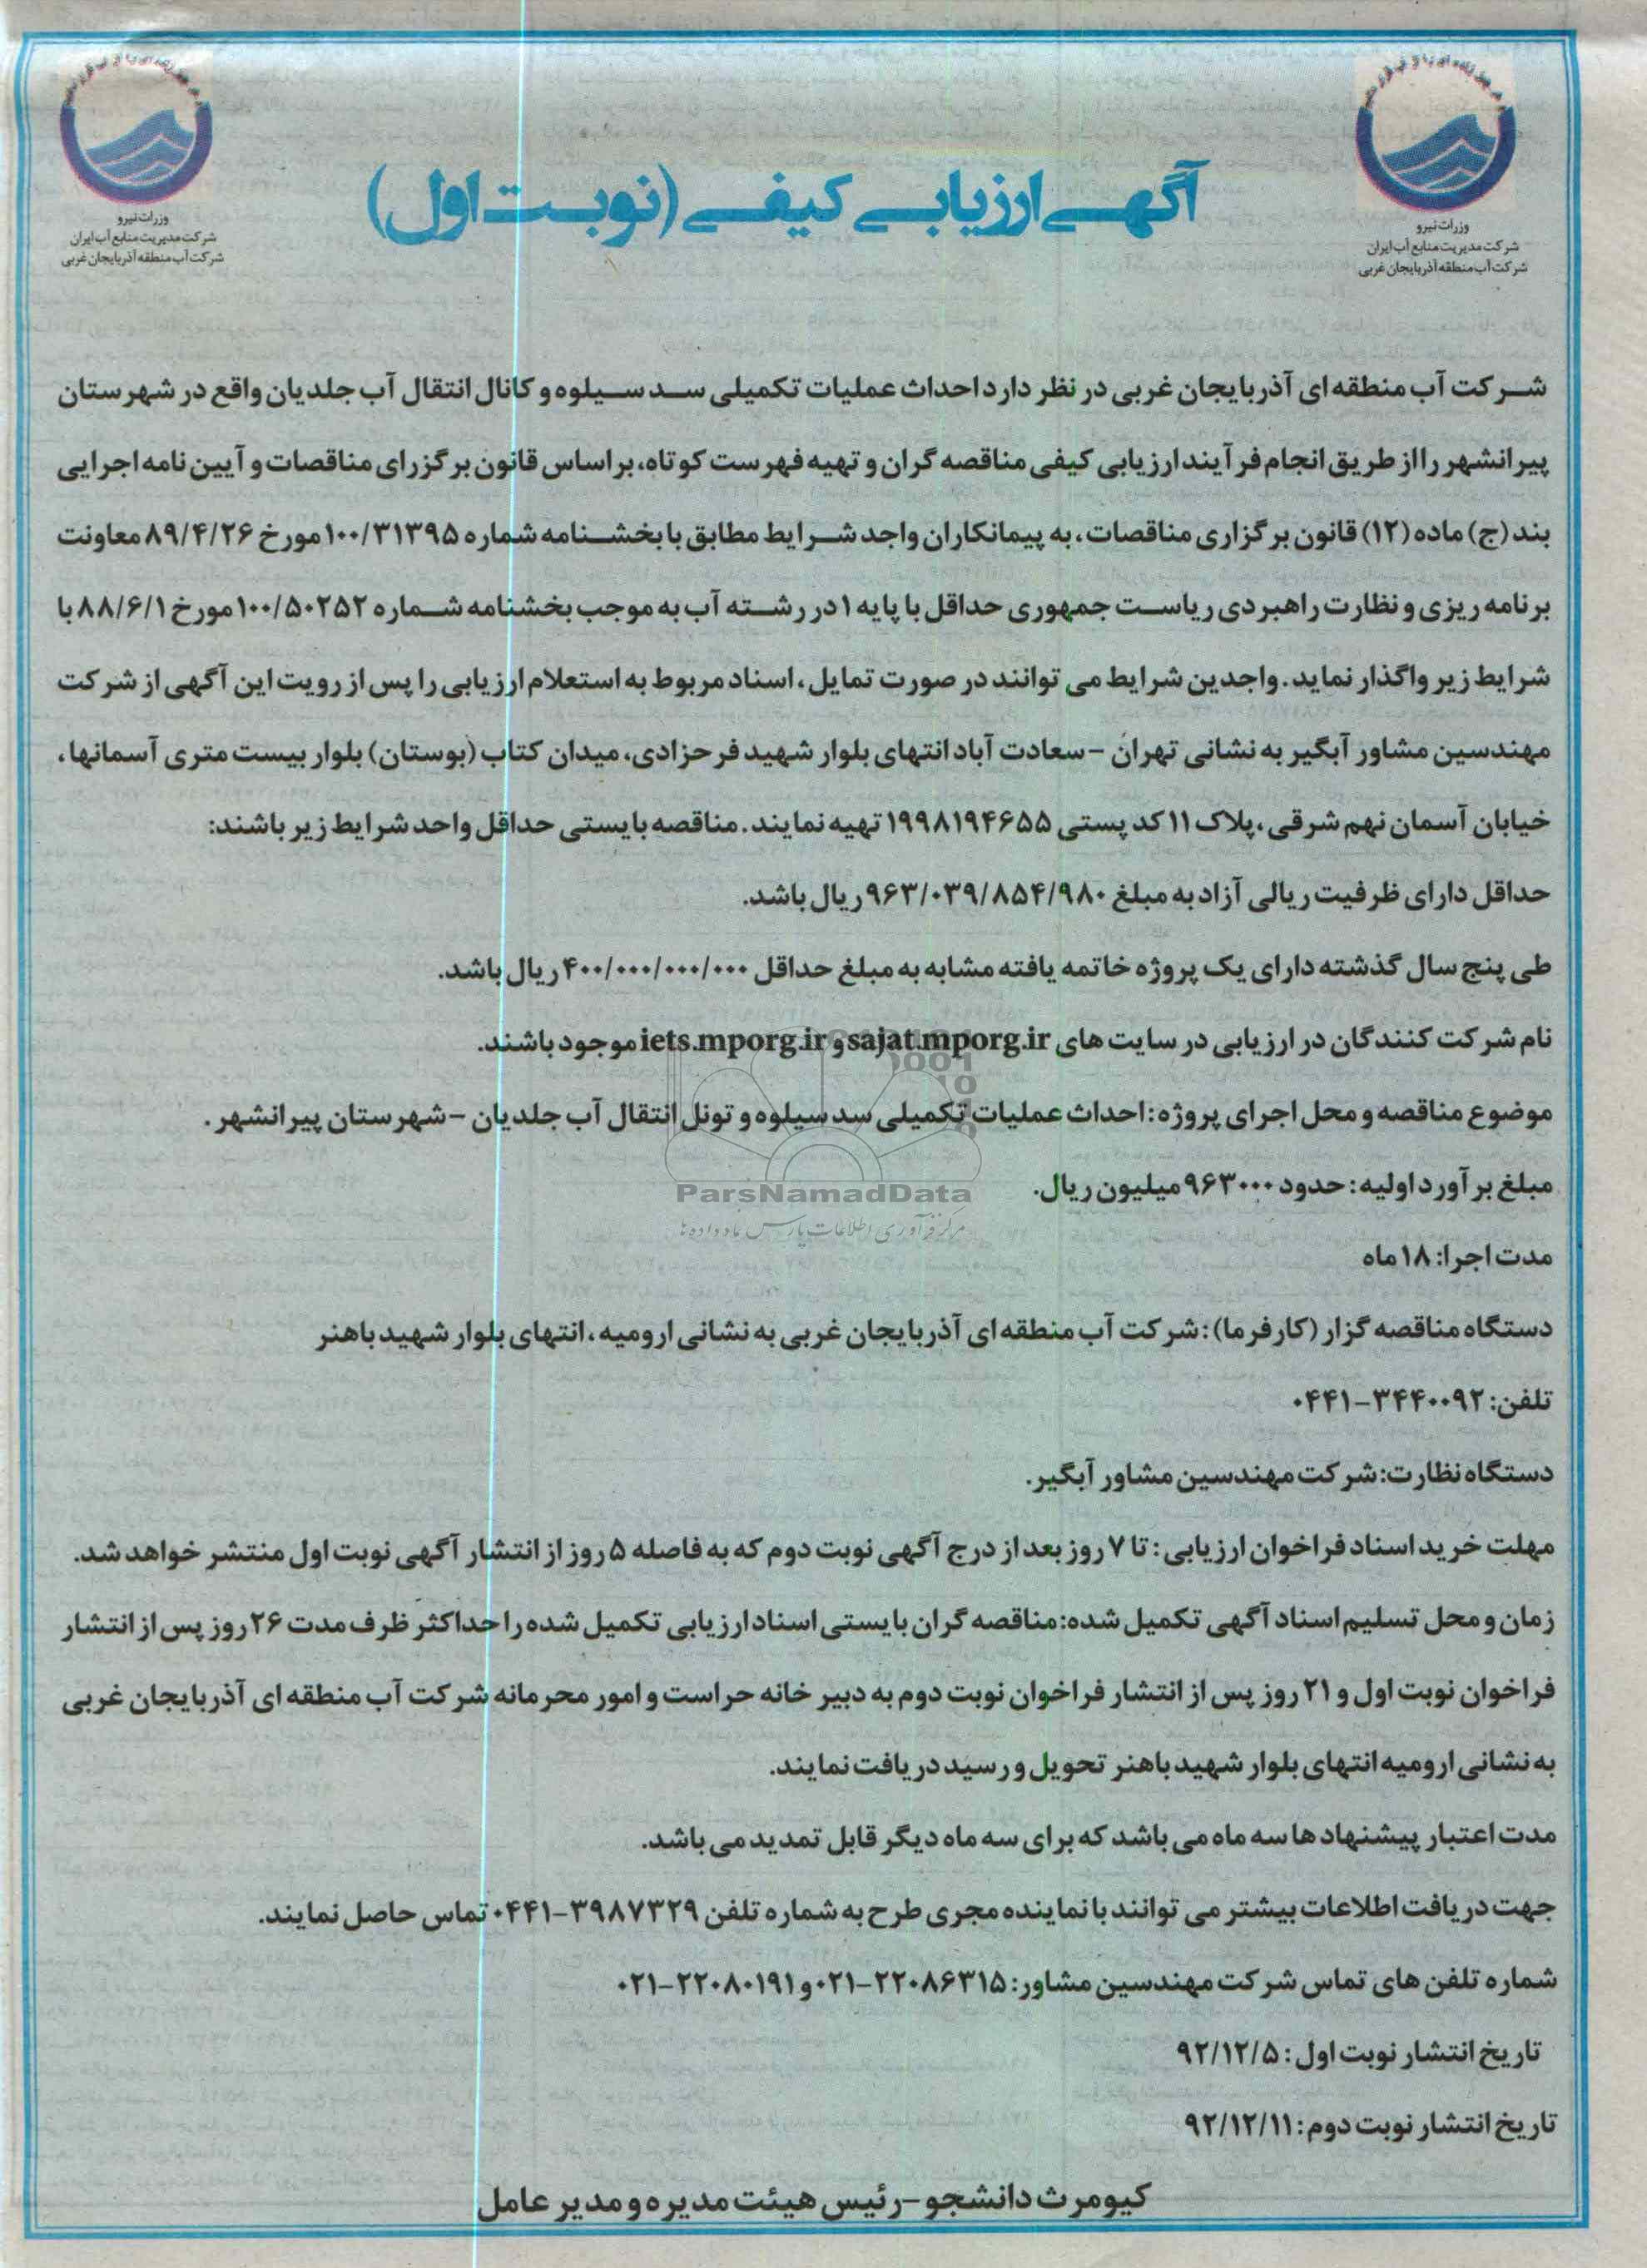 آگهی ارزیابی کیفی (نوبت اول)
وزارت نیرو
شرکت مدیریت منابع آب ایران
شرکت آب منطقه آذربایجان غربی
وزرات نیرو
شرکت مدیریت منابع آب ایران
شرکت آب منطقه آذربایجان غربی
شرکت آب منطقه ای آذربایجان غربی در نظر دارد احداث عملیات تکمیلی سد سیلوه و کانال انتقال آب جلدیان واقع در شهرستان
پیرانشهر را از طریق انجام فرآیند ارزیابی کیفی مناقصه گران و تهیه فهرست کوتاه، بر اساس قانون برگزرای مناقصات و آیین نامه اجرایی
بند (ج) ماده (۱۲) قانون برگزاری مناقصات، به پیمانکاران واجد شرایط مطابق با بخشنامه شماره ۱۰۰/۳۱۳۹۵ مورخ ۸۹/۴/۲۶ معاونت
برنامه ریزی و نظارت راهبردی ریاست جمهوری حداقل با پایه ۱ در رشته آب به موجب بخشنامه شماره ۱۰۰/۵۰۲۵۲ مورخ ۸۸/۶/۱ با
شرایط زیر واگذار نماید. واجدین شرایط می توانند در صورت تمایل، اسناد مربوط به استعلام ارزیابی را پس از رویت این آگهی از شرکت
مهندسین مشاور آبگیر به نشانی تهران -سعادت آباد انتهای بلوار شهید فرحزادی، میدان کتاب (بوستان) بلوار بیست متری آسمانها،
خیابان آسمان نهم شرقی، پلاک ۱۱ کد پستی ۱۹۹۸۱۹۴۶۵۵ تهیه نمایند. مناقصه بایستی حداقل واحد شرایط زیر باشند:
حداقل دارای ظرفیت ریالی آزاد به مبلغ ۹۶۳/۰۳۹/۸۵۴/۹۸۰ ریال باشد.
طی پنج سال گذشته دارای یک پروژه خاتمه یافته مشابه به مبلغ حداقل ۴۰۰/۰۰۰/۰۰۰/۰۰۰ ریال باشد.
نام شرکت کنندگان در ارزیابی در سایت های sajat.mporg.ir و iets.mporg.ir موجود باشند.
موضوع مناقصه و محل اجرای پروژه: احداث عملیات تکمیلی سد سیلوه و تونل انتقال آب جلدیان -شهرستان پیرانشهر.
ParsNamadData
مبلغ برآورد اولیه: حدود ۹۶۳۰۰۰ میلیون ریال.
مرکز فرآوری اطلاعات پارس نماد داده ها
مدت اجرا: ۱۸ ماه
دستگاه مناقصه گزار (کارفرما): شرکت آب منطقه ای آذربایجان غربی به نشانی ارومیه، انتهای بلوار شهید باهنر
تلفن: ۳۴۴۰۰۹۲-۰۴۴۱
دستگاه نظارت: شرکت مهندسین مشاور آبگیر.
مهلت خرید اسناد فراخوان ارزیابی: تا ۷ روز بعد از درج آگهی نوبت دوم که به فاصله ۵ روز از انتشار آگهی نوبت اول منتشر خواهد شد.
زمان و محل تسلیم اسناد آگهی تکمیل شده: مناقصه گران بایستی اسناد ارزیابی تکمیل شده را حداکثر ظرف مدت ۲۶ روز پس از انتشار
فراخوان نوبت اول و ۲۱ روز پس از انتشار فراخوان نوبت دوم به دبیر خانه حراست و امور محرمانه شرکت آب منطقه ای آذربایجان غربی
به نشانی ارومیه انتهای بلوار شهید باهنر تحویل و رسید دریافت نمایند.
مدت اعتبار پیشنهاد ها سه ماه می باشد که برای سه ماه دیگر قابل تمدید می باشد.
جهت دریافت اطلاعات بیشتر می توانند با نماینده مجری طرح به شماره تلفن ۳۹۸۷۳۲۹-۰۴۴۱ تماس حاصل نمایند.
شماره تلفن های تماس شرکت مهندسین مشاور: ۲۲۰۸۶۳۱۵-۰۲۱ و ۲۲۰۸۰۱۹۱-۰۲۱
تاریخ انتشار نوبت اول: ۹۲/۱۲/۵
تاریخ انتشار نوبت دوم: ۹۲/۱۲/۱۱
کیومرث دانشجو -رئیس هیئت مدیره و مدیر عامل